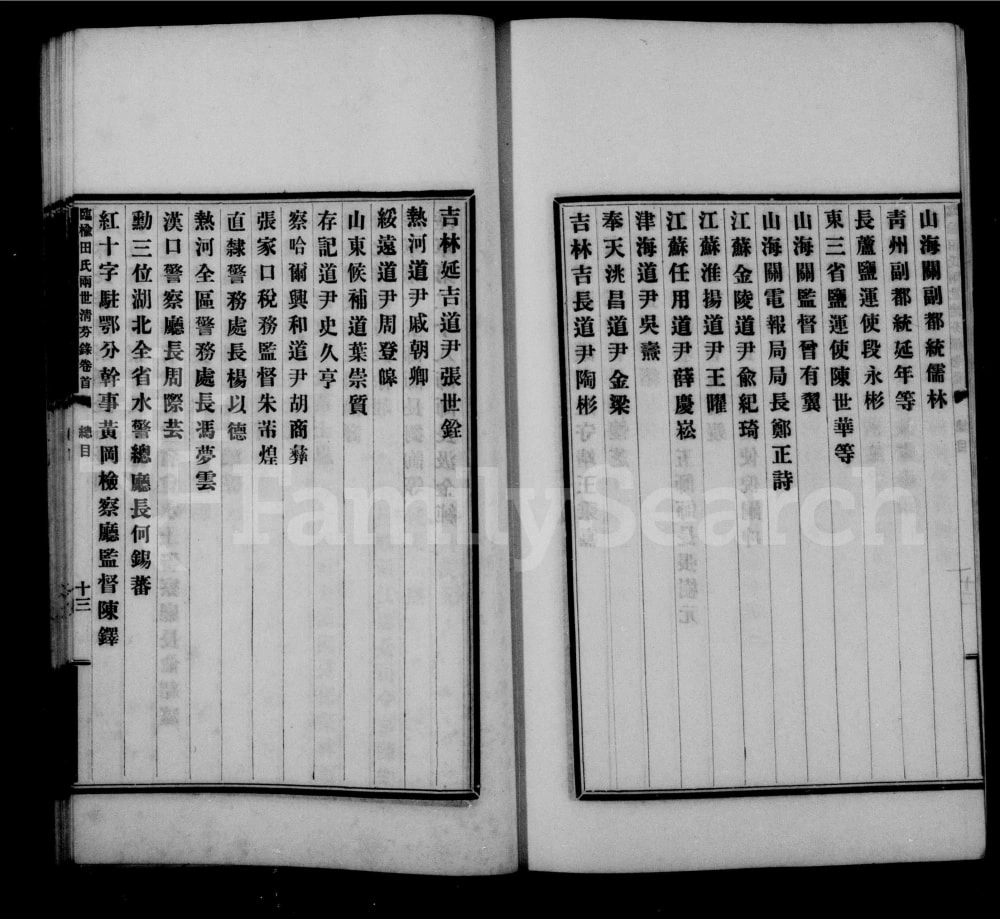 山海關副都統儒林
靑州副都統延年等
長蘆鹽運使段永彬
東三省鹽運使陳世華等
山海關監督曾有翼
山海關電報局局長鄭正詩
江蘇金陵道尹俞紀琦
江蘇淮揚道尹王曜
江蘇任用道尹薛慶崧
津海道尹吳燾
奉天洮昌道尹金梁
吉林吉長道尹陶彬
吉林延吉道尹張世銓
熱河道尹戚朝卿
綏遠道尹周登皞
山東候補道葉崇質
存記道尹史久亨
察哈爾興和道尹胡商彝
張家口稅務監督朱芾煌
直隸警務處長楊以德
熱河全區警務處長馮夢雲
漢口警察廳長周際芸
勳三位湖北全省水警總廳長何錫蕃
紅十字駐鄂分幹事黃岡檢察廳監督陳鐸
臨楡田氏兩世淸芬錄卷首 總目 十三
FamilySearch